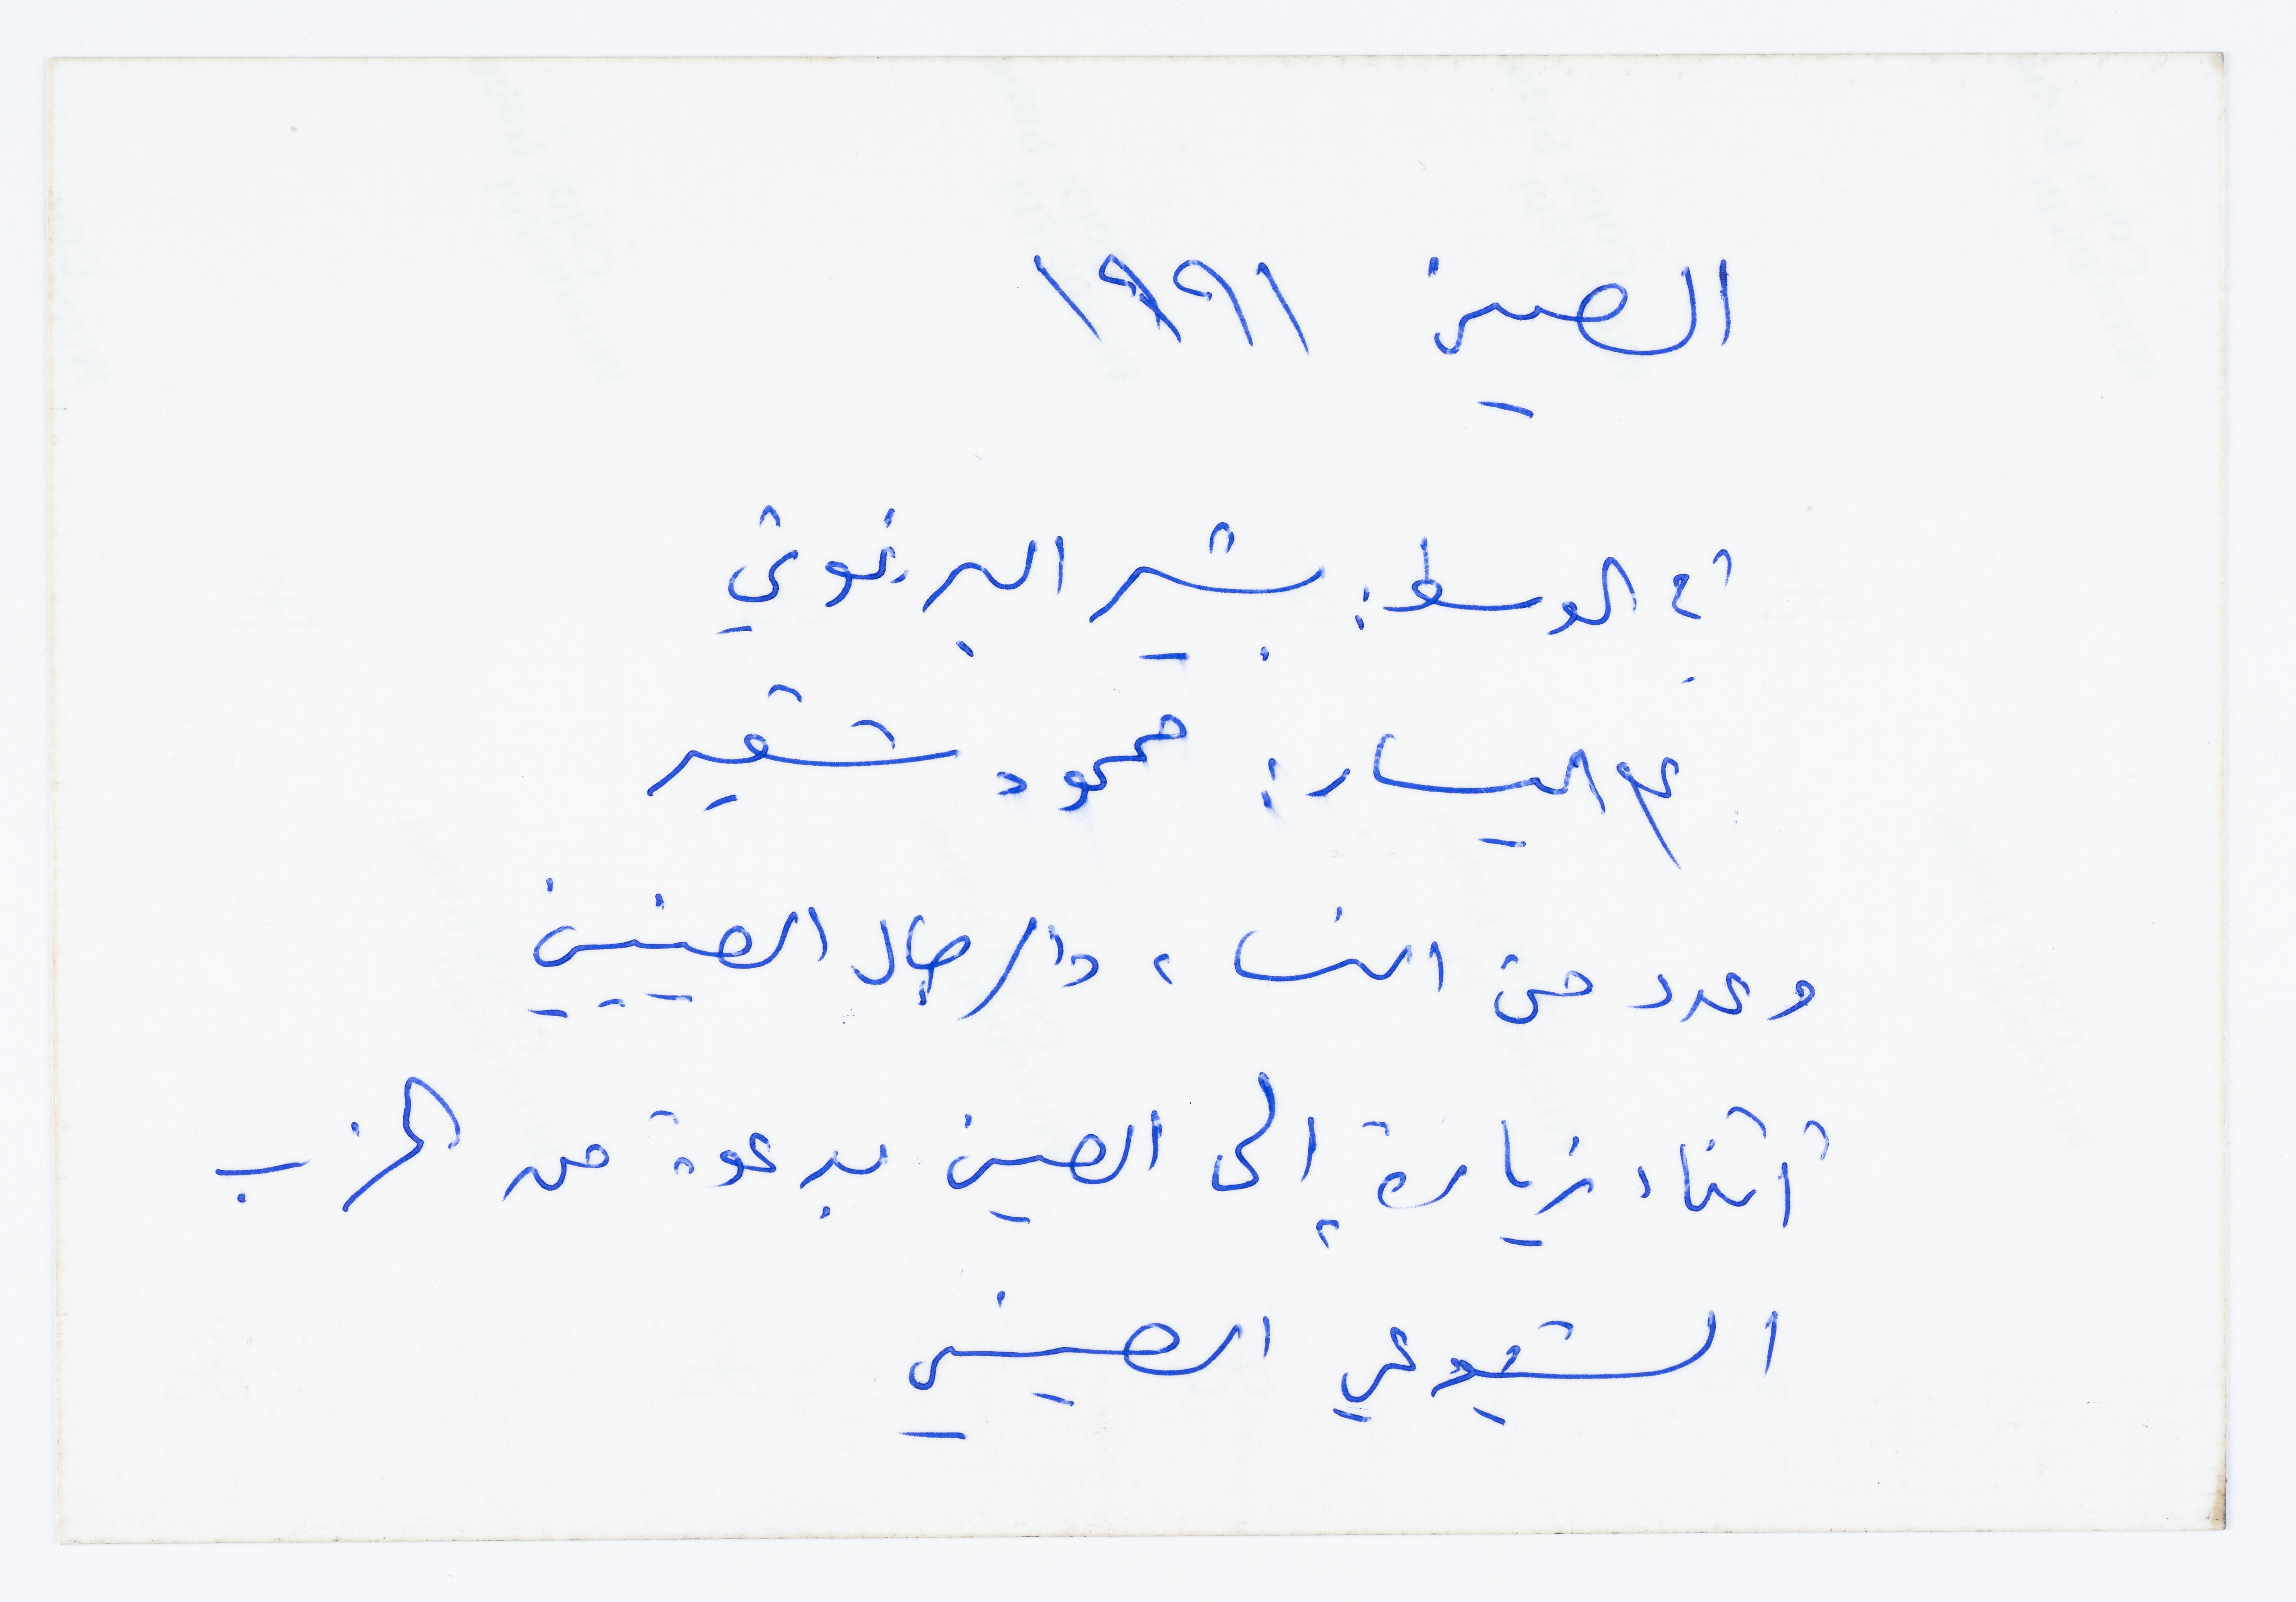 الصين ١٩٩١
في الوسط: بشير البرغوثي
على اليسار: محمود شقير
وعدد من النساء والرجال الصينيين
أثناء زيارة إلى الصين بدعوة من الحزب
الشيوعي الصيني